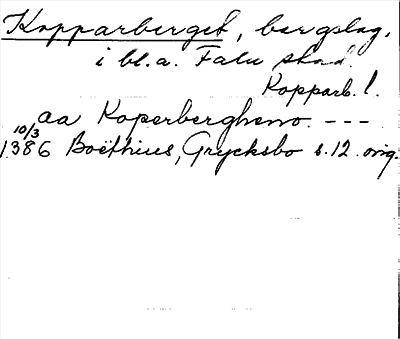 Kopparberget, bergslag,
i bl.a. Falu stad.
Kopparb. l.
aa Koperbergheno. ---
10/3
1386 Boëthius, Grycksbo s.12. orig.